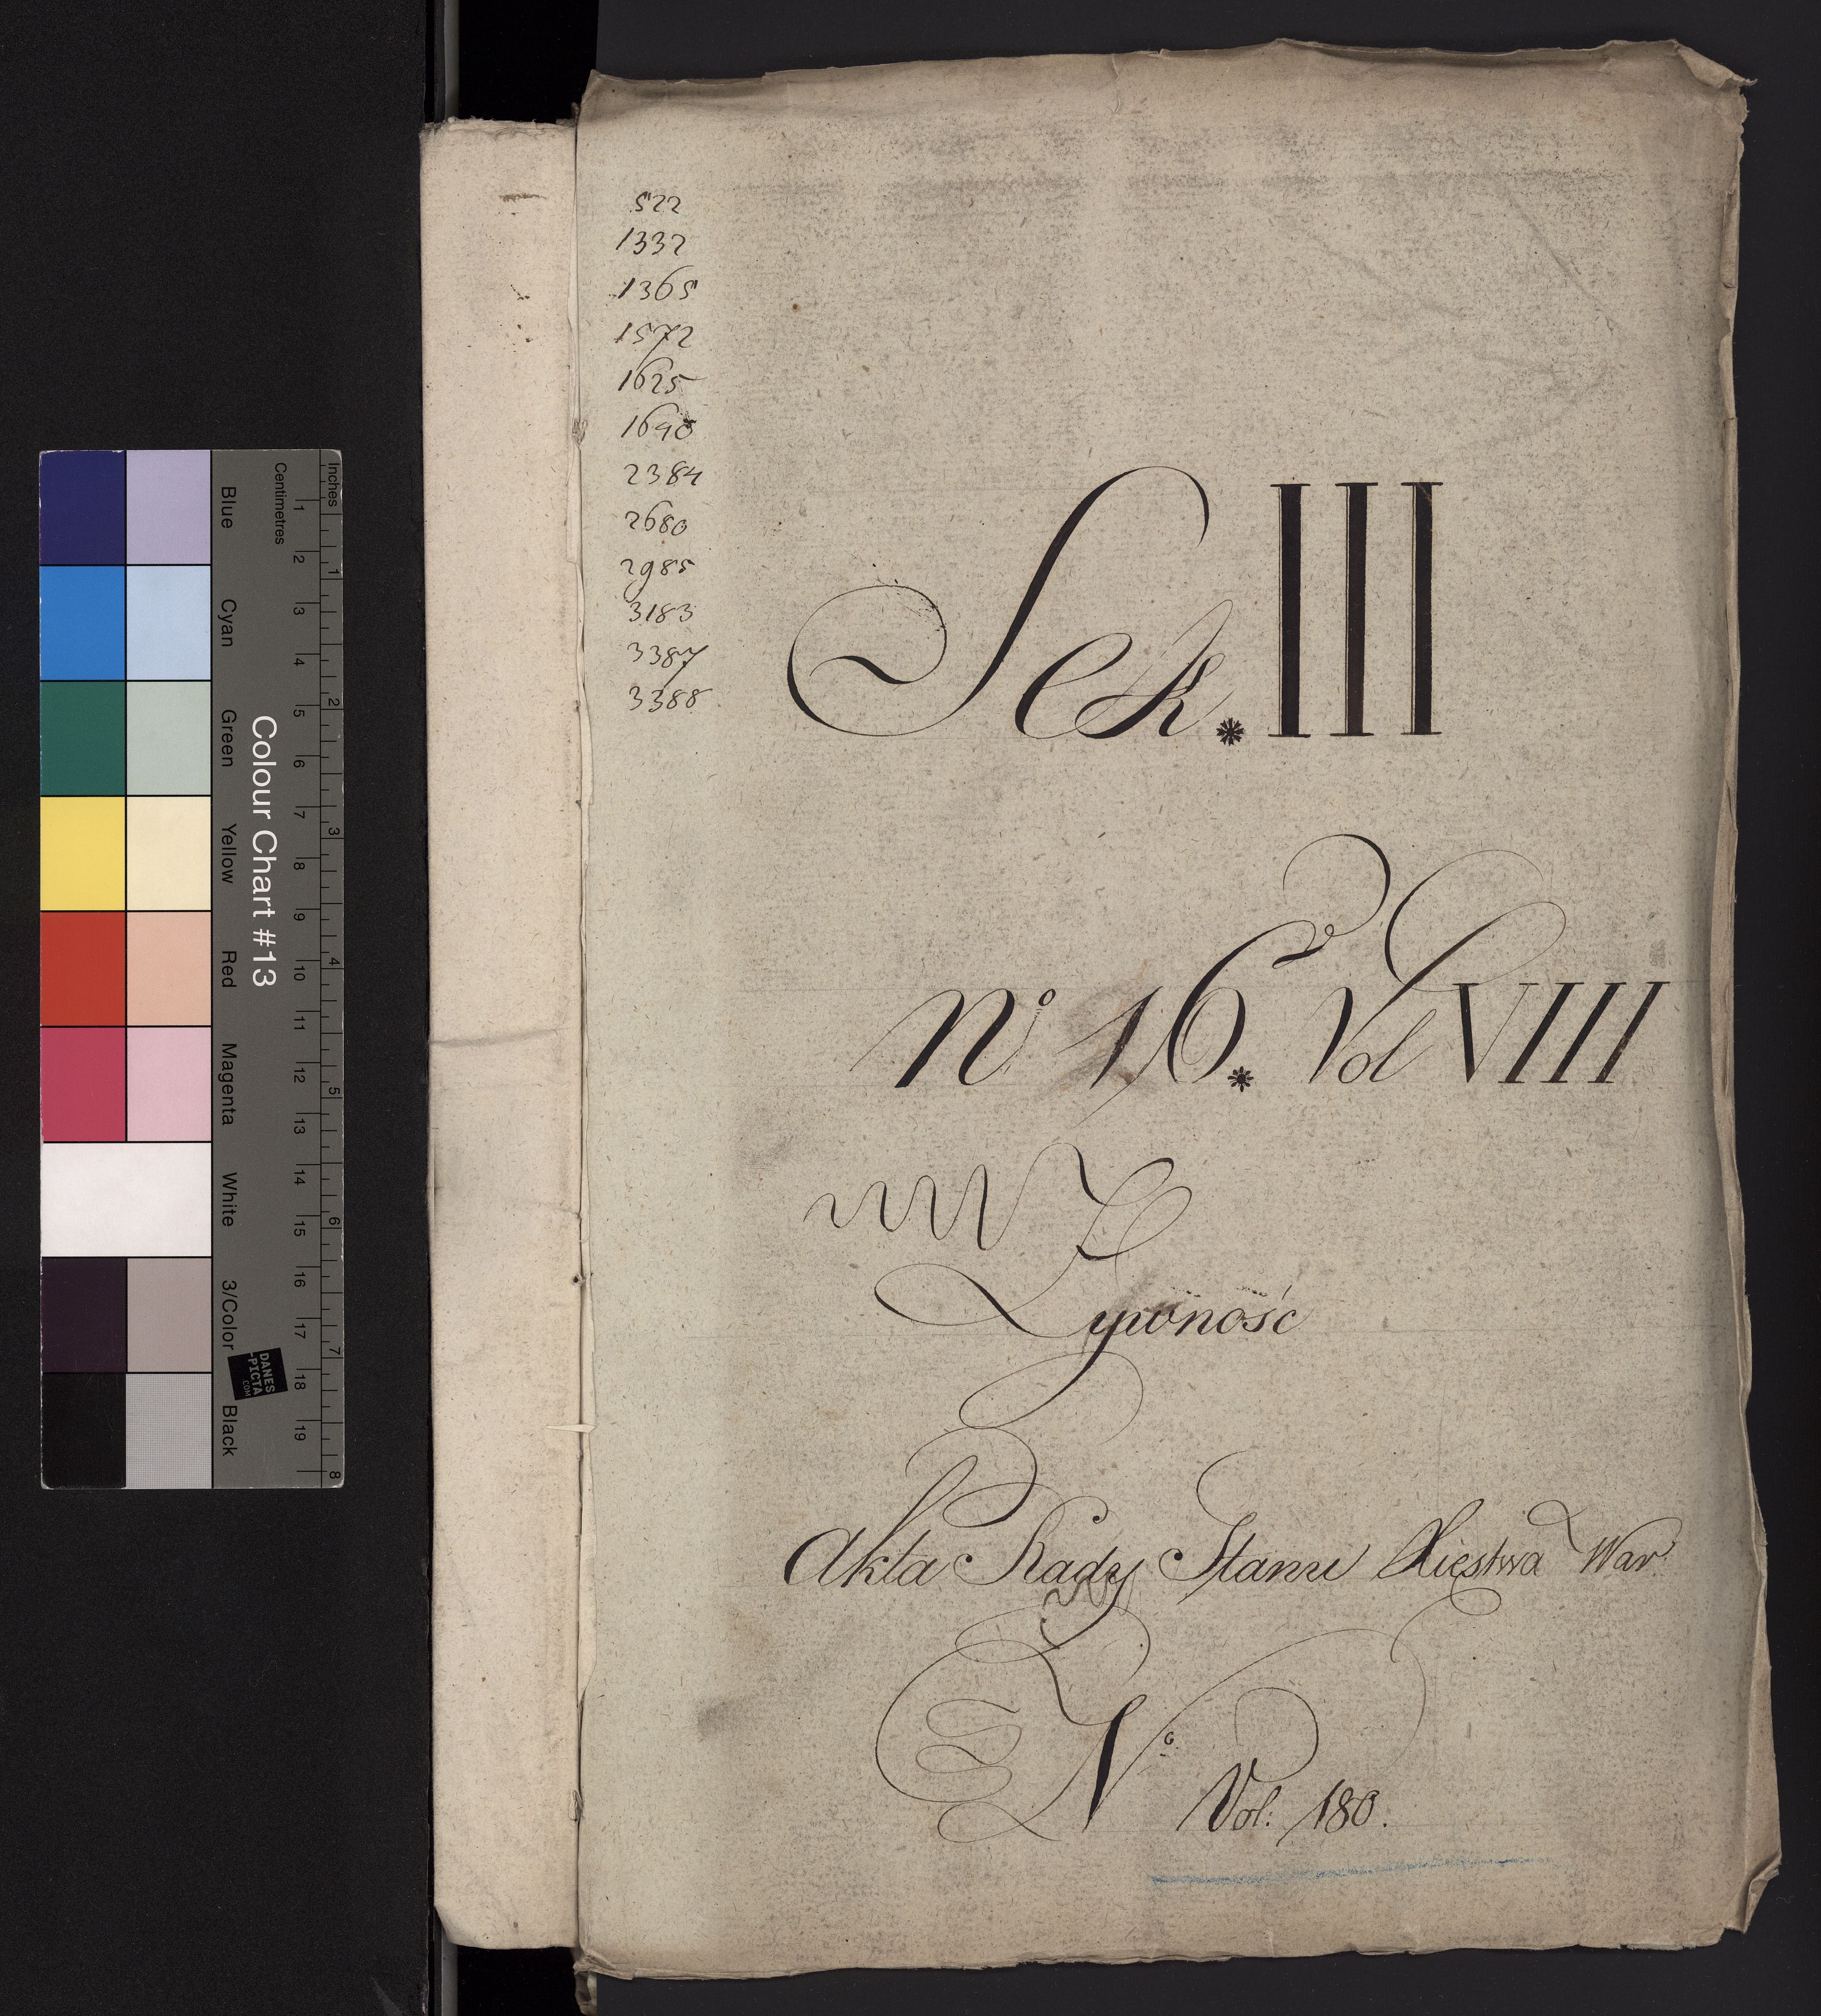 522
1332
1365
1572
1625
1690
2384
2680
2985
3183
3387
3388
Sek. III
No 16. Vol VIII
Zywność
Akta Rady Stanu Xięstwa War
No Vol: 180.
Inches
Centimetres
Colour Chart #13
Blue
Cyan
Green
Yellow
Red
Magenta
White
3/Color
Black
1 2 3 4 5 6 7 8 9 10 11 12 13 14 15 16 17 18 19
1 2 3 4 5 6 7 8
DANES
-PICTA
.COM